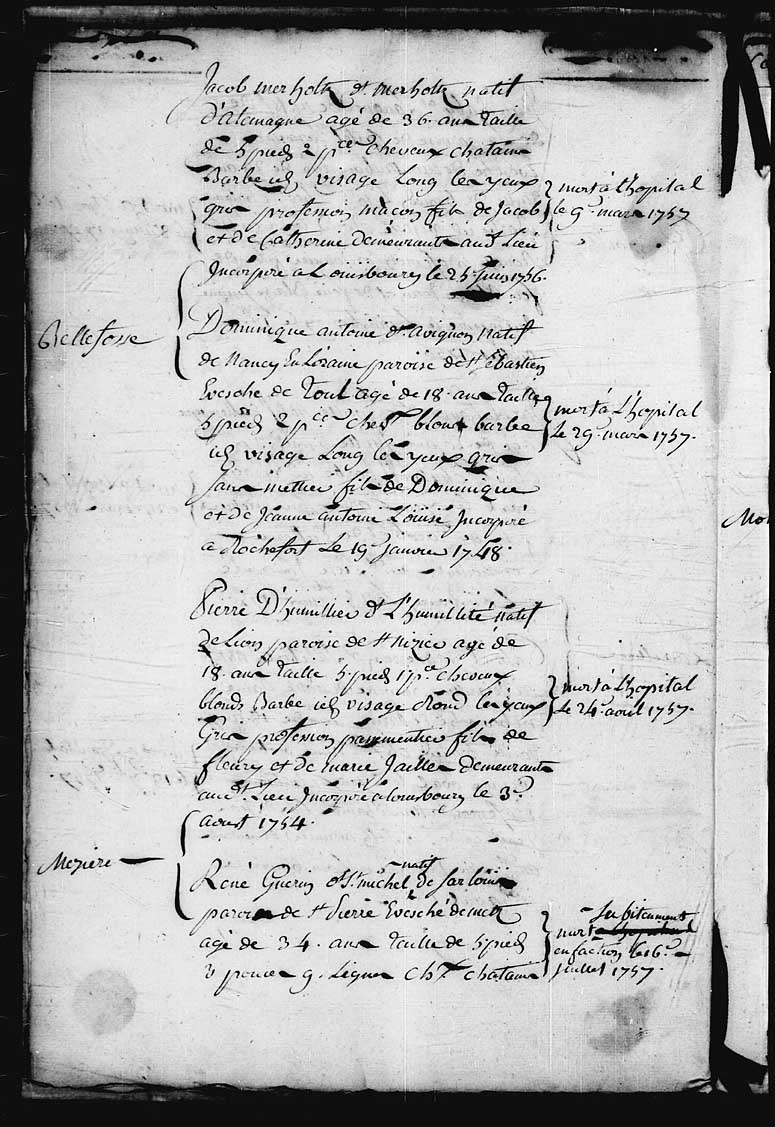 Jacob merholtz dt merholtz natif
d'alemagne agé de 36. ans Taille
de 5 pieds 2 pces cheveux chatains
Barbe id visage Long les yeux
gris profession maçon fils de Jacob
et de Catherine demeurants audt Lieu
Incorporé a Louisbourg le 25 Juin 1756.
mort à Lhopital
le 9e mars 1757
Bellefosse
Dominique antoine dt avignon natif
de Nancy En Loraine paroise de St Sébastien
Evesché de Toul agé de 18. ans Taille
5 pieds 2 pces chest blons barbe
id visage Long les yeux gris
sans mettier fils de Dominique
et de Jeanne antoine Louise Incorporé
a Rochefort Le 19e janvier 1748.
mort à L'hopital
Le 29e mars 1757.
Pierre D'humillier dt L'humillité natif
de Lion paroise de St nizier agé de
18. ans Taille 5 pieds 1 pce cheveux
blonds Barbe id visage Rond les yeux
Gris profession passmentier fils de
fleury et de marie Jailler demeurants
audt Lieu Incorporé a Louisbourg le 3e
aoust 1754.
mort à Lhopital
Le 24e avril 1757.
Mezière
René Guerin dt St michel natif de sarloüis
paroise de St Pierre Evesché de metz
agé de 34. ans Taille de 5 pieds
3 pouces 9. Lignes cht chatains
subitement
mort
en faction le 16e
Juillet 1757.